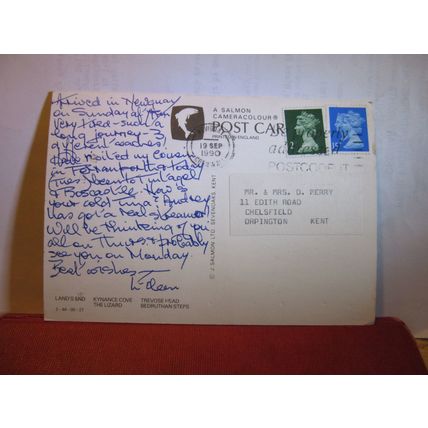 Arrived in Newquay
on Sunday at
very tired - such a
long journey - 3
different coaches!
Have visited my cousin
in today
Tues. been to Tintagel
& Boscastle. How's
your cold Tina? Audrey
has got a real steamer
Will be thinking of you
all on Thurs & probably
see you on Monday.
Best wishes
Eileen
A SALMON
CAMERACOLOUR®
POST CARD
PRINTED IN ENGLAND
19 SEP
1990
POSTCODE IT
© J. SALMON LTD. SEVENOAKS KENT
MR. & MRS. D. MERRY
11 EDITH ROAD
CHELSFIELD
ORPINGTON KENT
LAND'S END KYNANCE COVE TREVOSE HEAD
THE LIZARD BEDRUTHAN STEPS